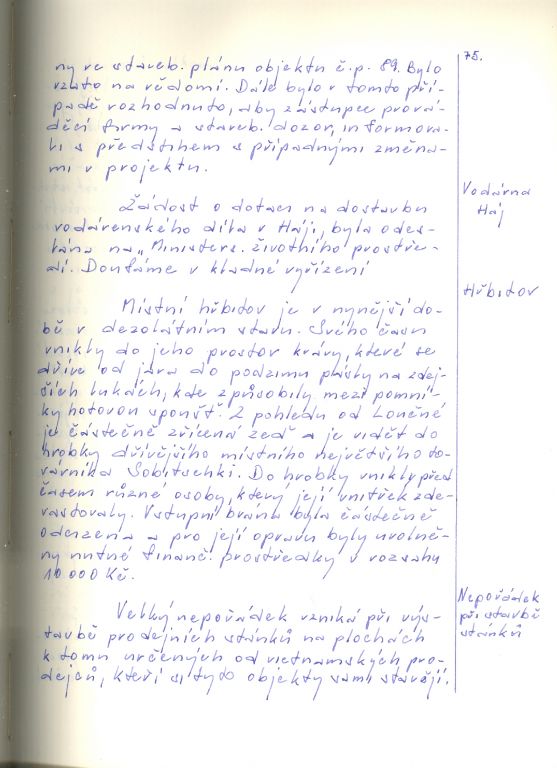 75.
ny ve staveb. plánu objektu č.p. 89. Bylo
vzato na vědomí. Dále bylo v tomto pří-
padě rozhodnuto, aby zástupce prová-
děcí firmy a staveb. dozor, informova-
li s předstihem s případnými změna-
mi v projektu.
Vodárna
Háj
Žádost o dotaci na dostavbu
vodárenského díla v Háji, byla odes-
lána na „Ministers. životního prostře-
dí. Doufáme v kladné vyřízení
Hřbitov
Místní hřbitov je v nynější do-
bě v dezolátním stavu. Svého času
vnikly do jeho prostor krávy, které se
dříve od jara do podzimu pásly na zdej-
ších lukách, kde způsobily mezi pomní-
ky hotovou spoušť. Z pohledu od Loučné
je částečně zřícená zeď a je vidět do
hrobky dřívějšího místního největšího to-
várníka Sobitschki. Do hrobky vnikly před
časem různé osoby, který její vnitřek zde-
vastovaly. Vstupní brána byla částečně
odcizena a pro její opravu byly uvolně-
ny nutné finanč. prostředky v rozsahu
10 000 Kč.
Nepořádek
při stavbě
stánků
Velký nepořádek vzniká při výs-
tavbě prodejních stánků na plochách
k tomu určených od vietnamských pro-
dejců, kteří si tyto objekty sami stavějí.